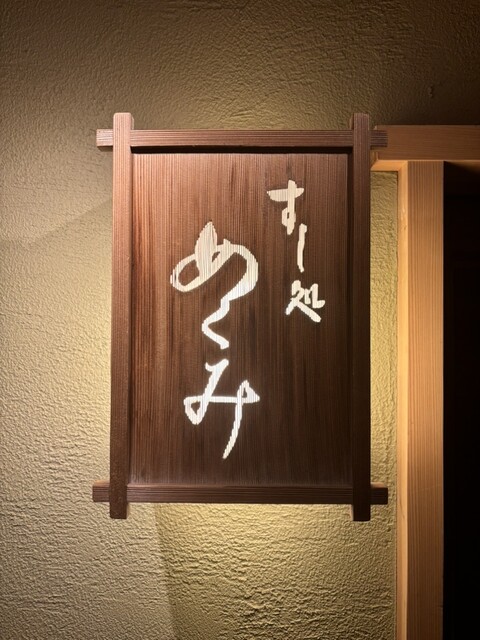 すし処
めくみ